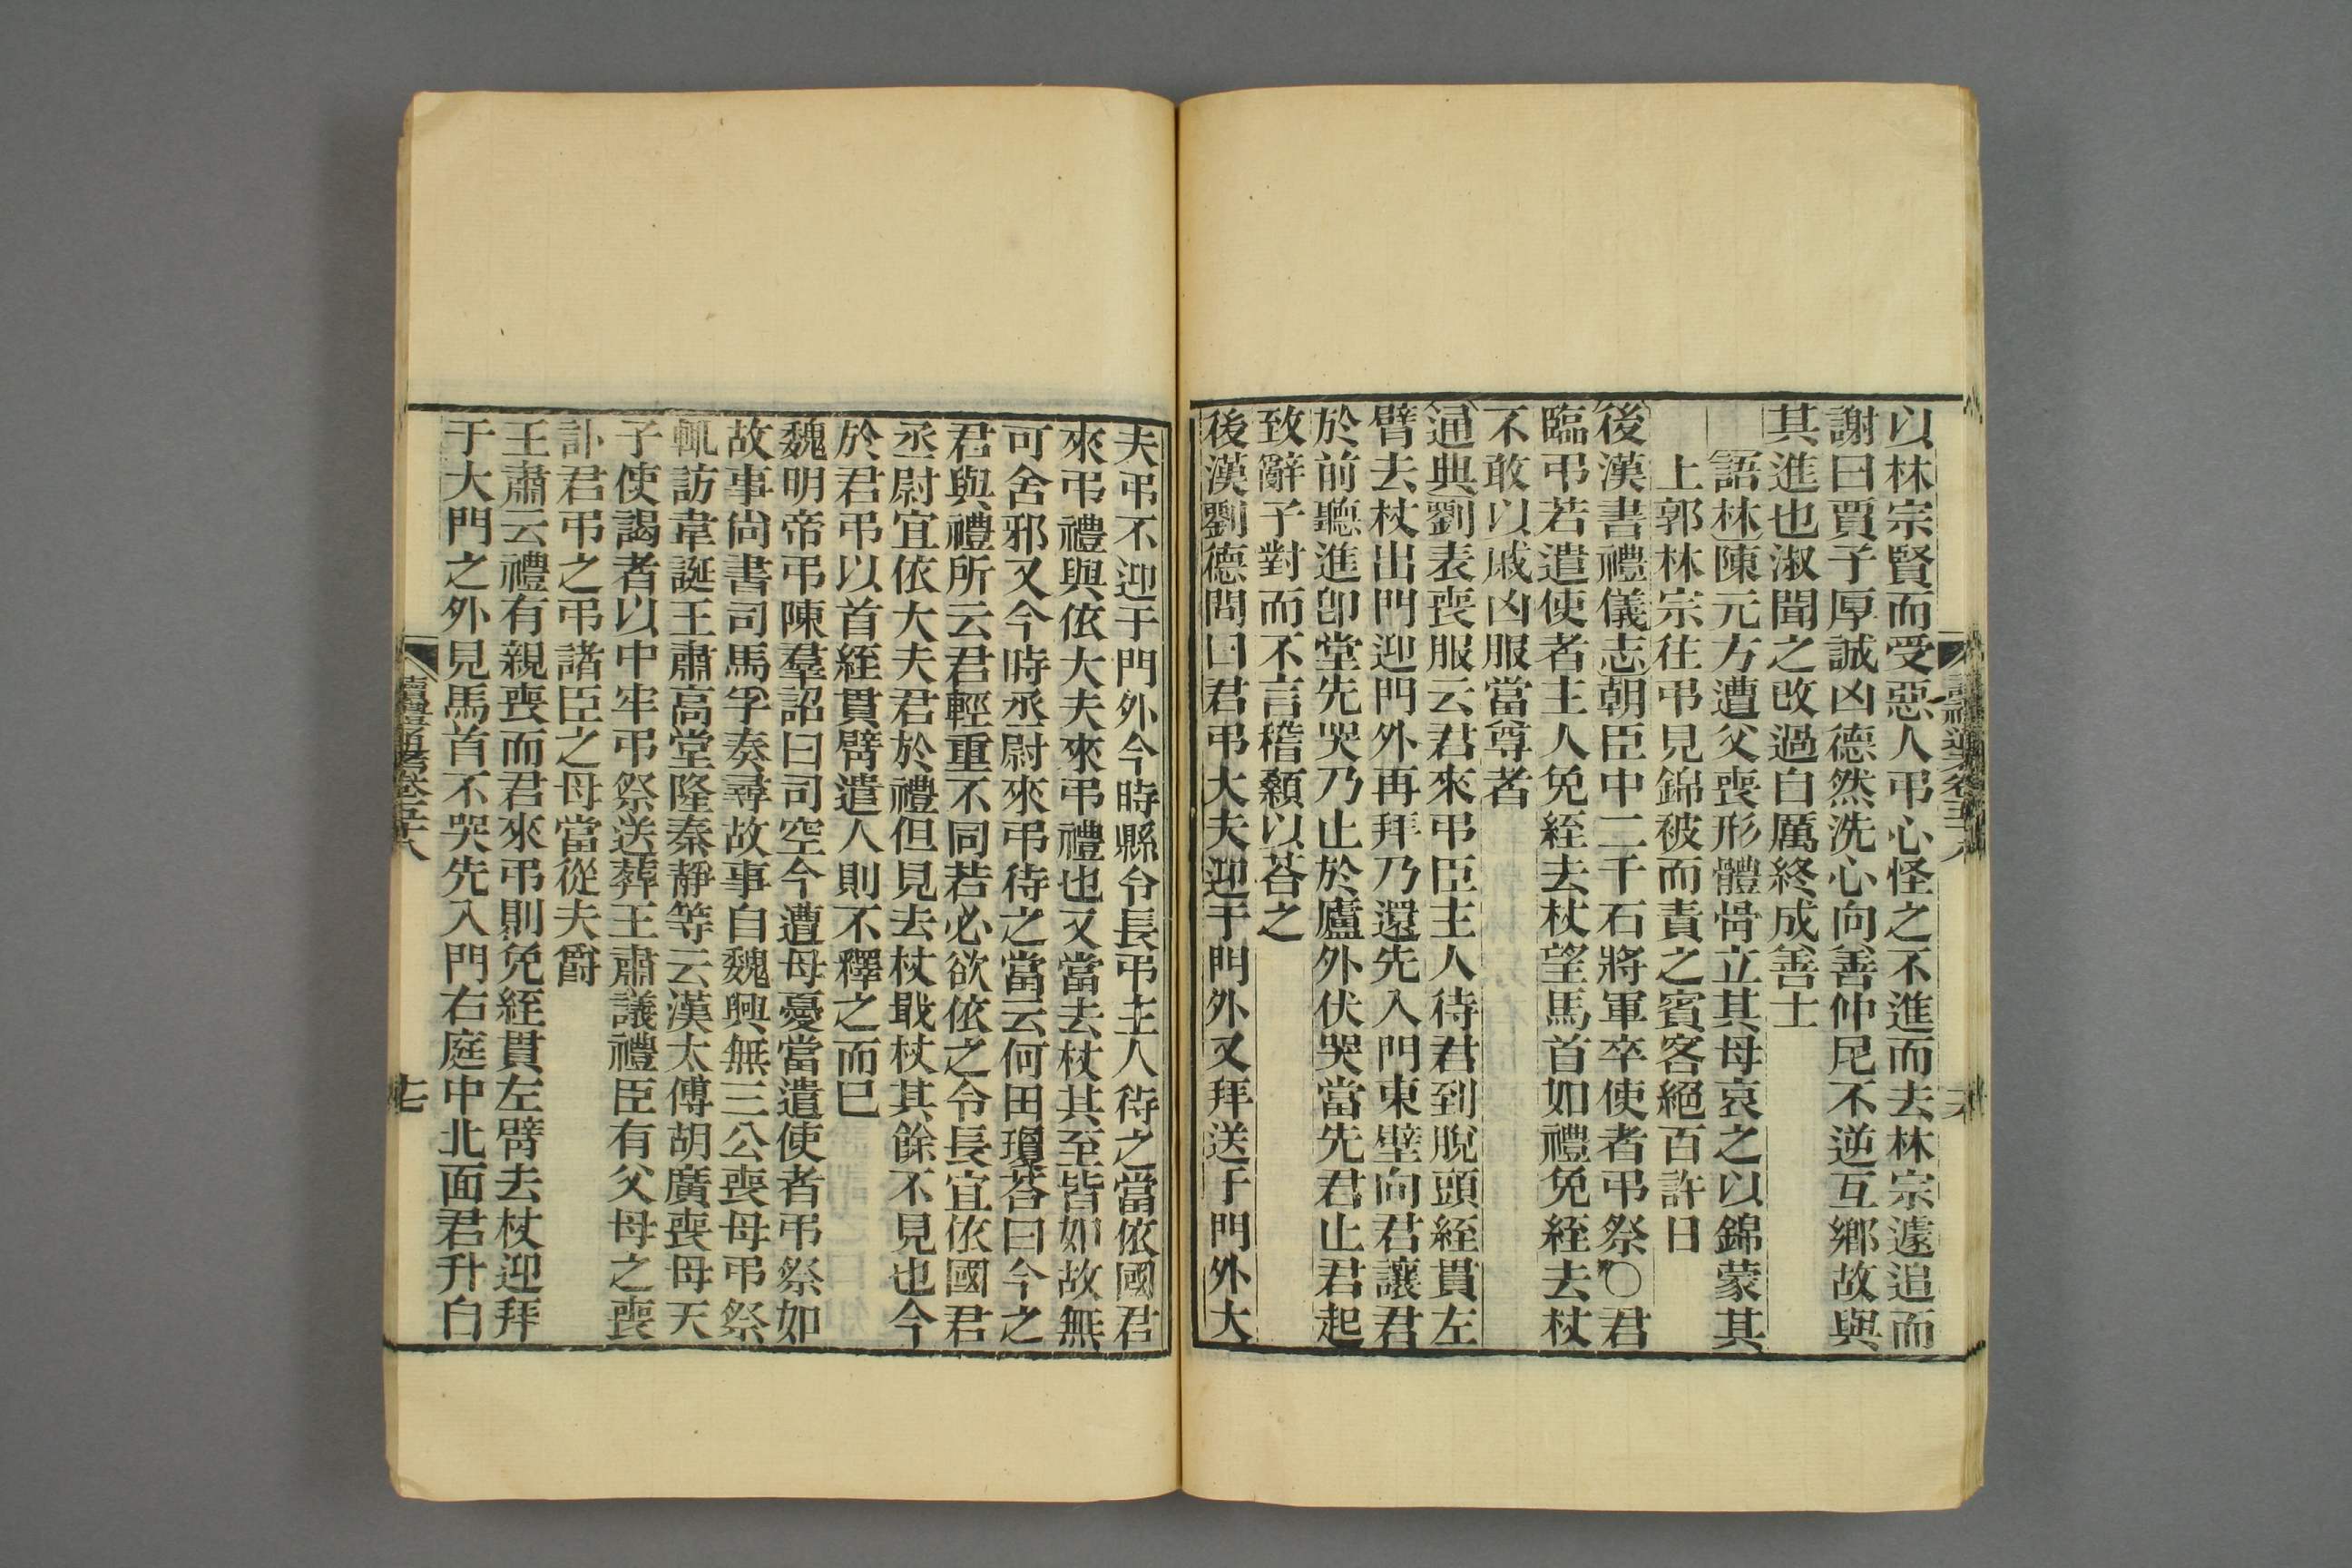 以林宗賢而受惡人弔心怪之不進而去林宗遽追而
謝曰賈子厚誠凶德然洗心向善仲尼不逆互鄉故與
其進也淑聞之改過自厲終成善士
語林陳元方遭父喪形體骨立其母哀之以錦蒙其
上郭林宗往弔見錦被而責之賓客絕百許日
後漢書禮儀志朝臣中二千石將軍卒使者弔祭〇君
臨弔若遣使者主人免絰去杖望馬首如禮免絰去杖
不敢以戚凶服當尊者
通典劉表喪服云君來弔臣主人待君到脫頭絰貫左
臂去杖出門迎門外再拜乃還先入門東壁向君讓君
於前聽進卽堂先哭乃止於廬外伏哭當先君止君起
致辭子對而不言稽顙以荅之
後漢劉德問曰君弔大夫迎于門外又拜送于門外大
夫弔不迎于門外今時縣令長弔主人待之當依國君
來弔禮與依大夫來弔禮也又當去杖其至皆如故無
可舍邪又今時丞尉來弔待之當云何田瓊荅曰今之
君與禮所云君輕重不同若必欲依之令長宜依國君
丞尉宜依大夫君於禮但見去杖戢杖其餘不見也今
於君弔以首絰貫臂遣人則不釋之而已
魏明帝弔陳羣詔曰司空今遭母憂當遣使者弔祭如
故事尙書司馬孚奏尋故事自魏興無三公喪母弔祭
輒訪韋誕王肅高堂隆秦靜等云漢太傅胡廣喪母天
子使謁者以中牢弔祭送葬王肅議禮臣有父母之喪
訃君弔之弔諸臣之母當從夫爵
王肅云禮有親喪而君來弔則免絰貫左臂去杖迎拜
于大門之外見馬首不哭先入門右庭中北面君升自
讀禮通考卷五十八